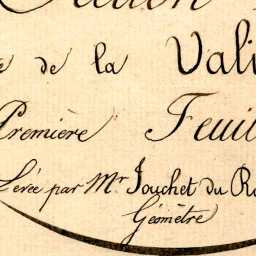 de la Vali
Première Feuil
Levée par Mr Jouchet du Ro
Géomètre